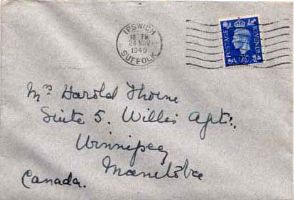 IPSWICH
1940
SUFFOLK
POSTAGE REVENUE
Mrs Harold Thorne
Suite 5. Willis Apt:.
Winnipeg
Manitoba
Canada.